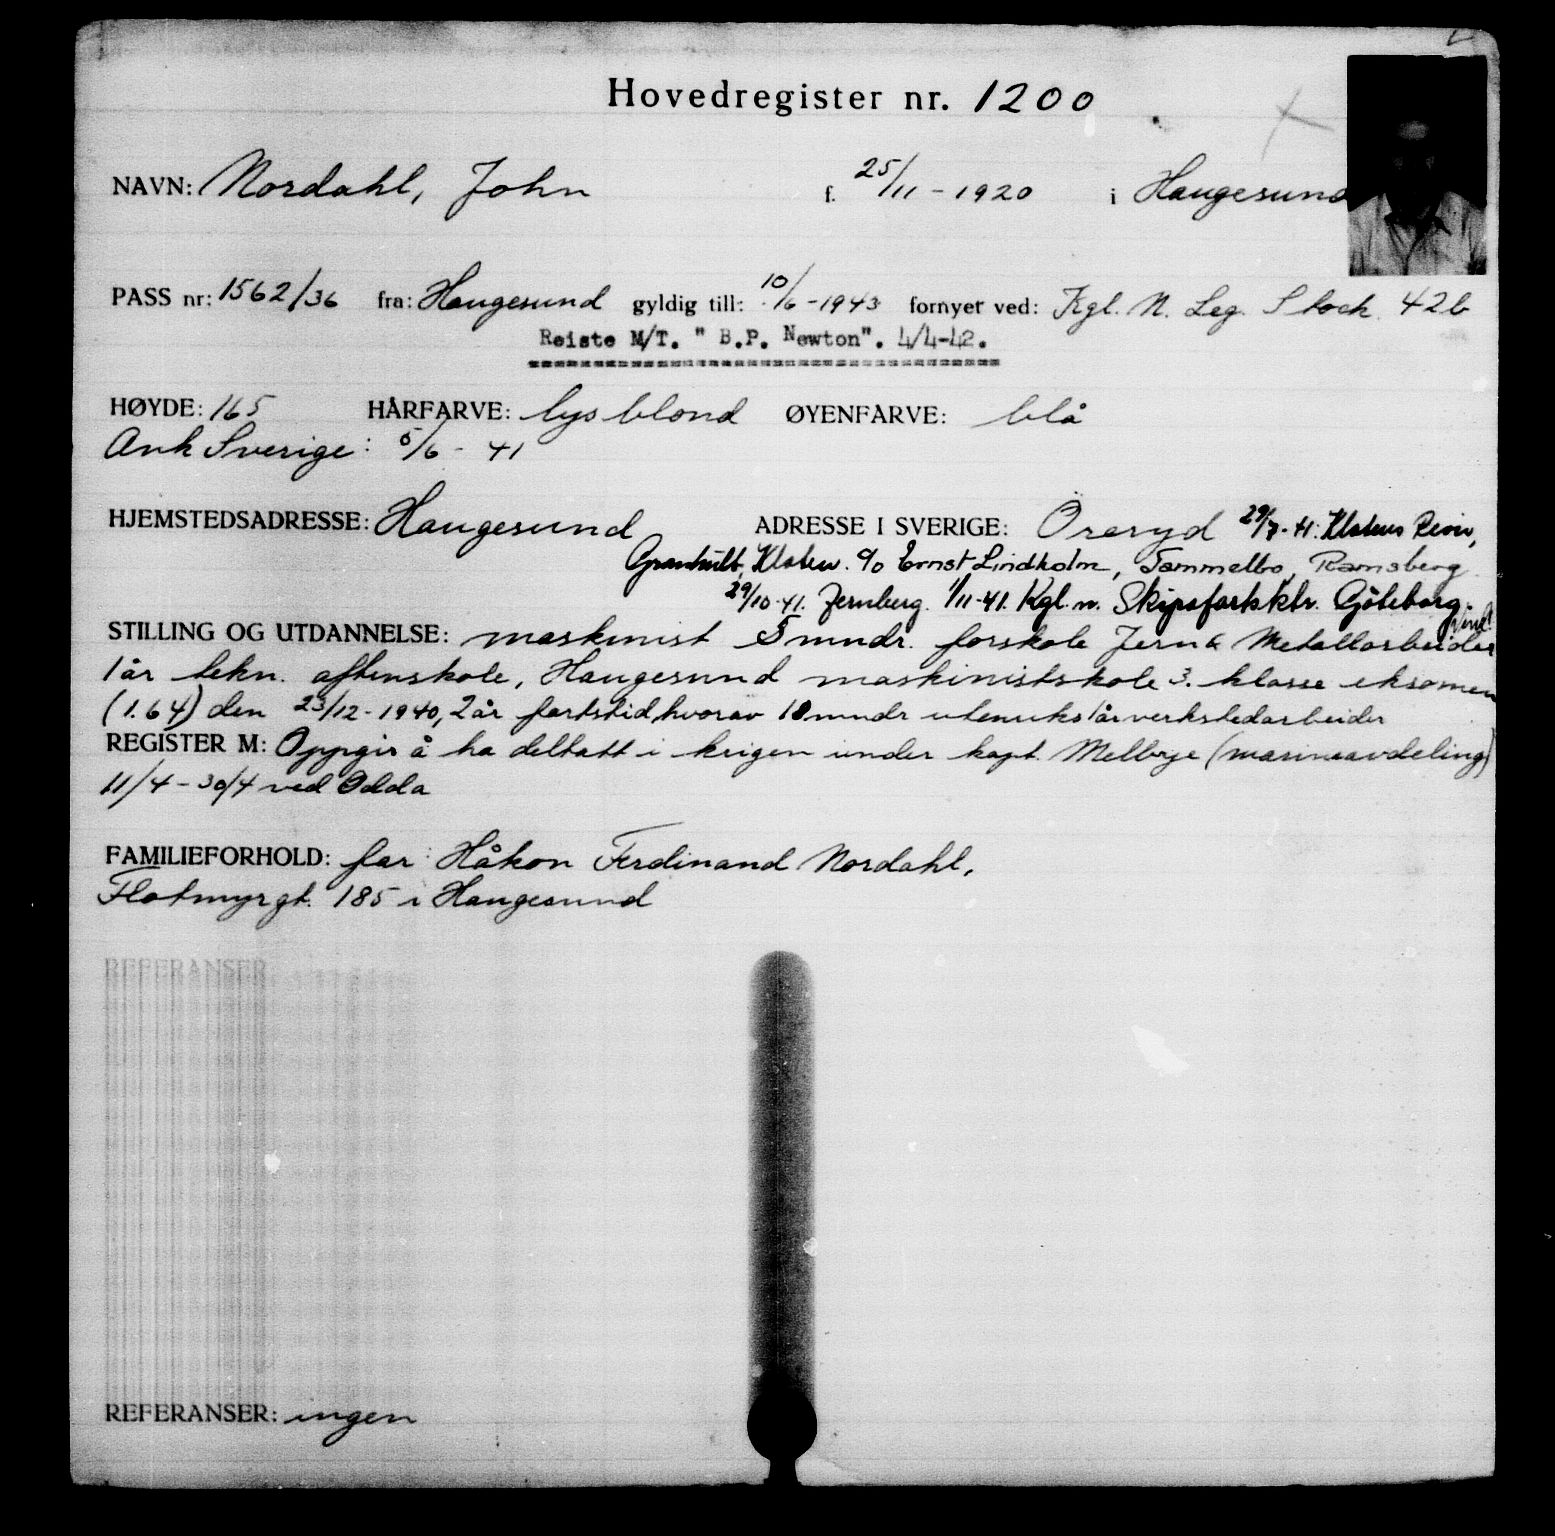 Hovedregister nr. 1200
NAVN: Nordahl, John f. 25/11 - 1920 i Haugesund
PASS nr: 1562/36 fra: Haugesund gyldig till: 10/6 - 1943 fornyet ved: Kgl. N. Leg. Stock. 42b
Reiste M/T. " B.P. Newton". 4/4-42.
HØYDE: 165 HÅRFARVE: lys blond ØYENFARVE: blå
Ank Sverige: 5/6 - 41
HJEMSTEDSADRESSE: Haugesund ADRESSE I SVERIGE: Öreryd 29/7-41: Klotens Revir,
Granhult, Kloten. c/o Ernst Lindholm, Tammelbo, Ramsberg
29/10-41. Jernberg. 1/11-41. Kgl. n. Skipsfartsktr. Göteborg.
STILLING OG UTDANNELSE: maskinist 5 mndr. forskole Jern & Metallarbeider
1 år tekn. aftenskole, Haugesund maskinistskole 3. klasse eksamen
(1.64) den 23/12-1940, 2 år fartstid hvorav 10 mndr utenriks 1 år verkstedarbeider
REGISTER M: Oppgir å ha deltatt i krigen under kapt. Melbye (marineavdeling)
11/4 - 30/4 ved Odda
FAMILIEFORHOLD: far: Håkon Ferdinand Nordahl,
Flotmyrgt. 185 i Haugesund
REFERANSER
REFERANSER: ingen